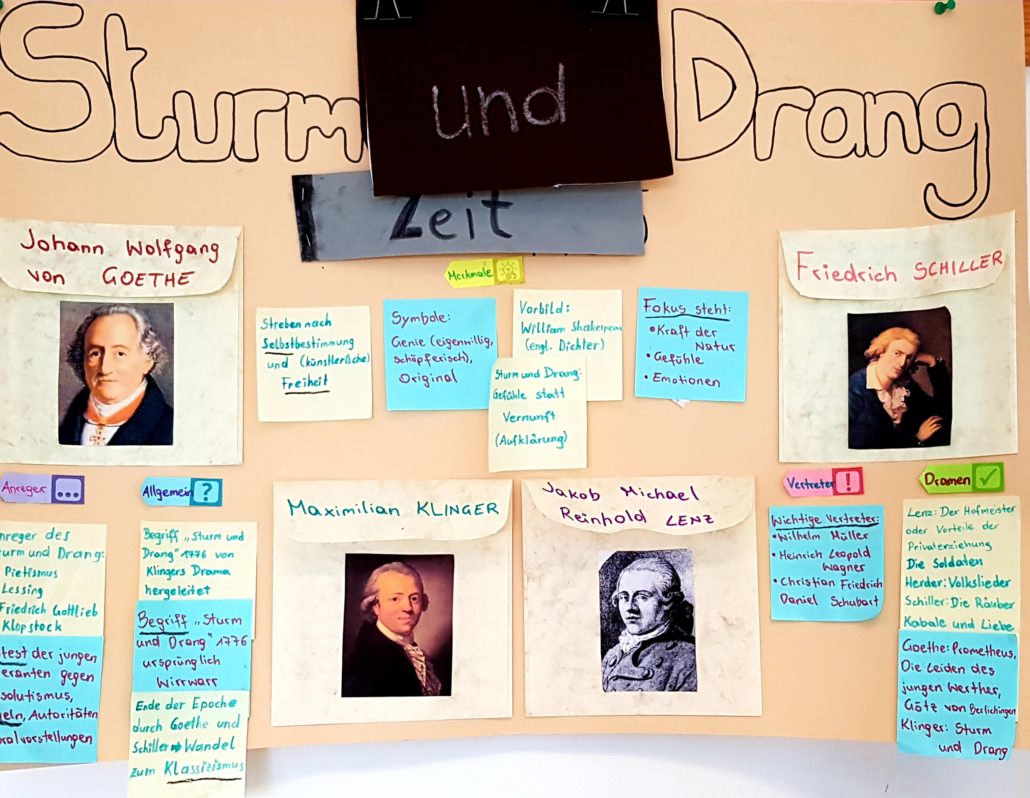 Sturm und Drang
Zeit
Johann Wolfgang
von GOETHE
Merkmale
Streben nach
Selbstbestimmung
und (künstlerische)
Freiheit
Symbole:
Genie (eigenwillig,
schöpferisch),
Original
Vorbild:
William Shakespeare
(engl. Dichter)
Sturm und Drang:
Gefühle statt
Vernunft
(Aufklärung)
Fokus steht:
• Kraft der
Natur
• Gefühle
• Emotionen
Friedrich SCHILLER
Anreger
nreger des
turm und Drang:
Pietismus
Lessing
Friedrich Gottlieb
Klopstock
test der jungen
eranten gegen
solutismus,
geln, Autoritäten
ralvorstellungen
Allgemein
Begriff „Sturm und
Drang" 1776 von
Klingers Drama
hergeleitet
Begriff „Sturm
und Drang" 1776
ursprünglich
Wirrwarr
Ende der Epoche
durch Goethe und
Schiller → Wandel
zum Klassizismus
Maximilian KLINGER
Jakob Michael
Reinhold LENZ
Vertreter
Wichtige Vertreter:
• Wilhelm Müller
• Heinrich Leopold
Wagner
• Christian Friedrich
Daniel Schubart
Dramen
Lenz: Der Hofmeister
oder Vorteile der
Privaterziehung
Die Soldaten
Herder: Volkslieder
Schiller: Die Räuber
Kabale und Liebe
Goethe: Prometheus,
Die Leiden des
jungen Werther,
Götz von Berlichingen
Klinger: Sturm
und Drang